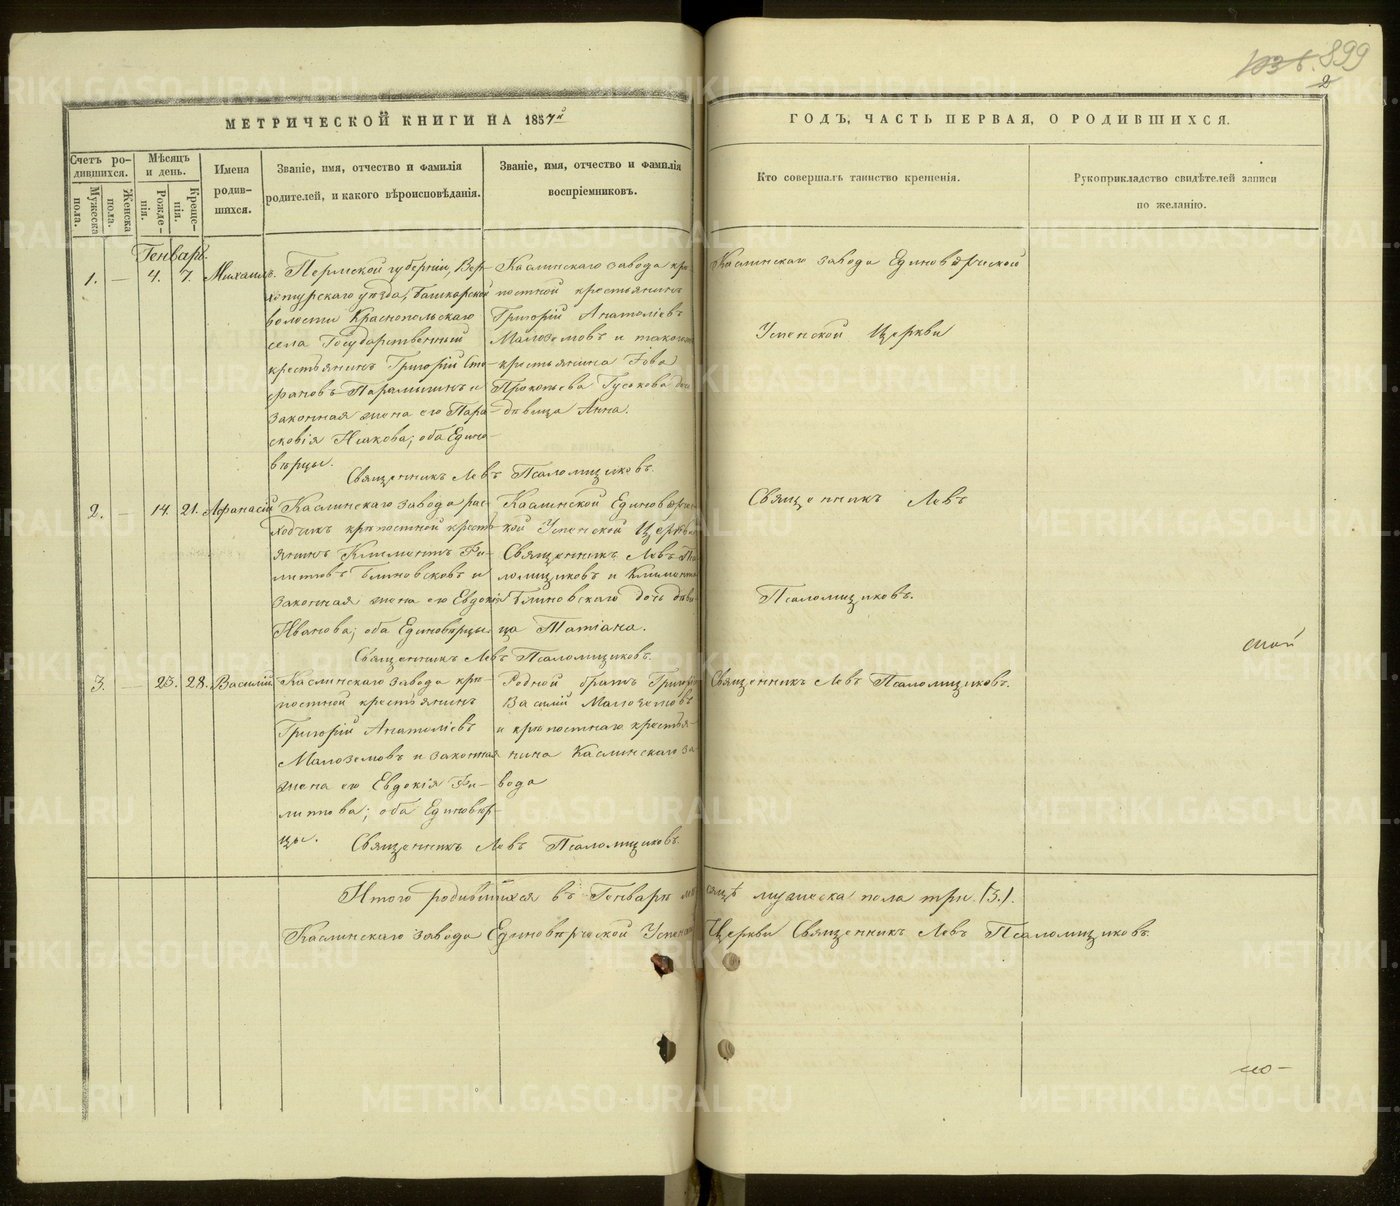 899
2
МЕТРИЧЕСКОЙ КНИГИ НА 1857й
ГОДЪ, ЧАСТЬ ПЕРВАЯ, О РОДИВШИХСЯ.
Счетъ ро-
дившихся.
Мужеска
пола.
Женска
пола.
Мѣсяцъ
и день.
Рожде-
нія.
Креще-
нія.
Имена
родив-
шихся.
Званіе, имя, отчество и фамилія
родителей, и какого вѣроисповѣданія.
Званіе, имя, отчество и фамилія
воспріемниковъ.
Кто совершалъ таинство крещенія.
Рукоприкладство свидѣтелей записи
по желанію.
Генварь.
1. — 4. 7. Михаилъ.
Пермской губерніи, Вер-
хотурскаго уѣзда, Башкарской
волости Краснопольскаго
села Государственный
крестьянинъ Григорій Сте-
фановъ и
законная жена его Пара-
сковія Исакова; оба Едино-
вѣрцы.
Каслинскаго завода крѣ-
постной крестьянинъ
Григорій Анатоліевъ
Малоземовъ и такогоже
крестьянина Іова
Прокопьева Гусакова дочь
дѣвица Анна.
Каслинскаго завода Единовѣрческой
Успенской Церкви
Священникъ Левъ Псаломщиковъ.
2. — 14. 21. Афанасій
Каслинскаго завода рас-
ходчикъ крѣпостной кресть-
янинъ Климентъ Фи-
липповъ Блиновсковъ и
законная жена его Евдокія
Иванова; оба Единовѣрцы.
Каслинской Единовѣрчес-
кой Успенской Церкви
Священникъ Левъ Пса-
ломщиковъ и Климента
Блиновскаго дочь дѣви-
ца Татіана.
Священникъ Левъ
Псаломщиковъ.
Священникъ Левъ Псаломщиковъ.
3. — 23. 28. Василій
Каслинскаго завода крѣ-
постной крестьянинъ
Григорій Анатоліевъ
Малоземовъ и законная
жена его Евдокія Фи-
липпова; оба Единовѣр-
цы.
Родной братъ Григорія
Василій Малоземовъ
и крѣпостнаго крестья-
нина Каслинскаго за-
вода
Священникъ Левъ Псаломщиковъ.
Священникъ Левъ Псаломщиковъ.
Итого родившихся въ Генварѣ мѣсяцѣ мужеска пола три. (3.).
Каслинскаго завода Единовѣрческой Успенской Церкви Священникъ Левъ Псаломщиковъ.
METRIKI.GASO-URAL.RU